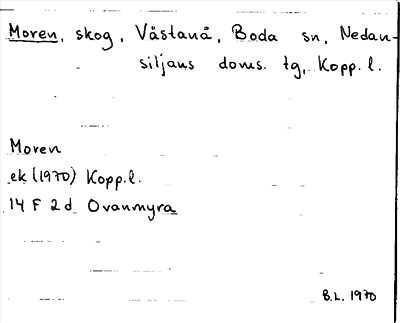 Moren, skog, Våstanå, Boda sn, Nedan-
siljans doms. tg, Kopp. l.
Moren
ek (1970) Kopp. l.
14 F 2 d Ovanmyra
B.L. 1970